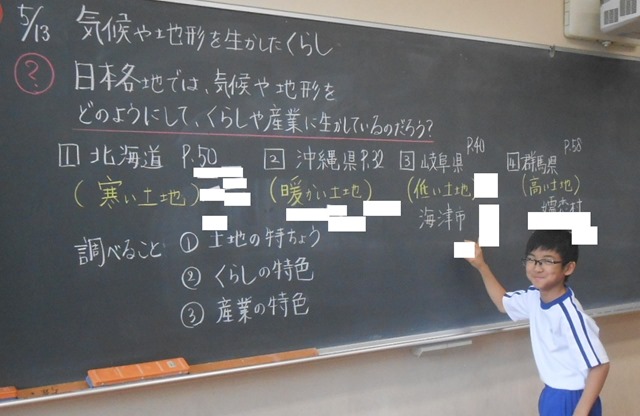 5/13 気候や地形を生かしたくらし
? 日本各地では、気候や地形を
どのようにして、くらしや産業に生かしているのだろう?
1 北海道 P.50 2 沖縄県P.32 3 岐阜県 P.40 4 群馬県 P.58
(寒い土地) (暖かい土地) (低い土地) (高い土地)
海津市 嬬恋村
調べること ① 土地の特ちょう
② くらしの特色
③ 産業の特色